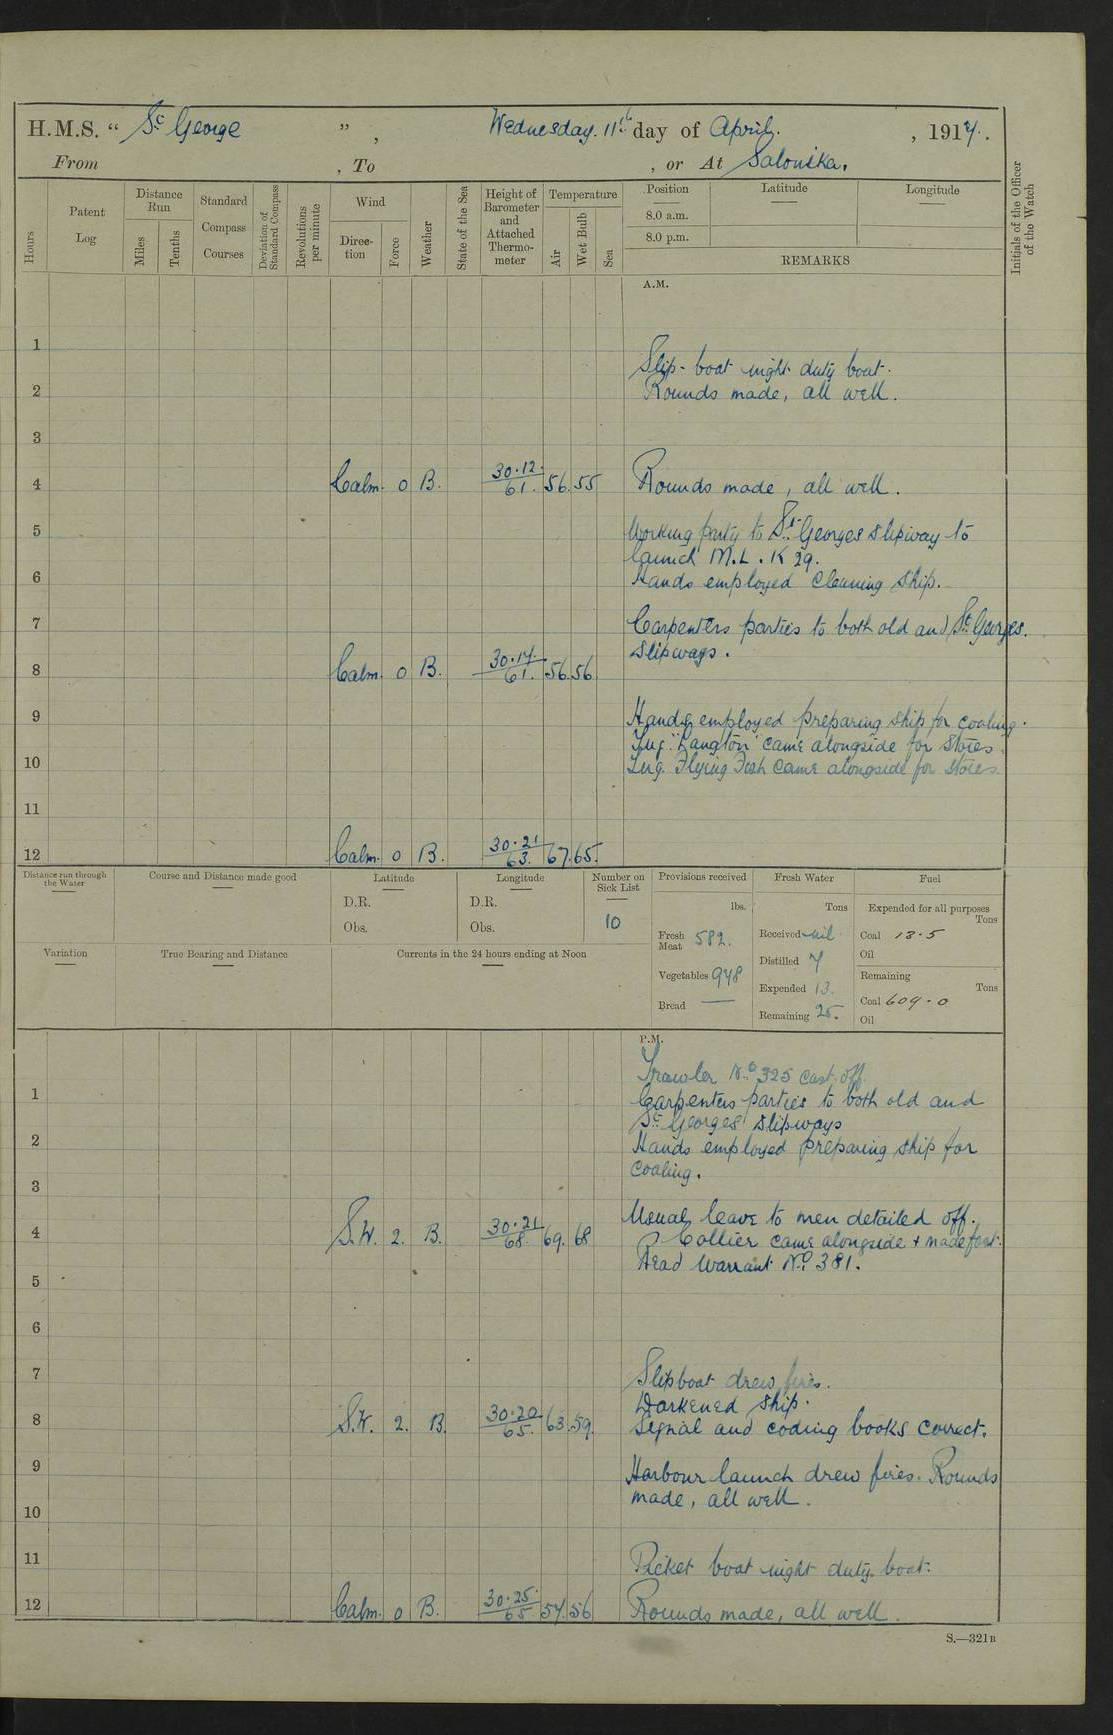 H.M.S. “ St George ” , Wednesday. 11th day of April. , 1917.
From , To , or At Salonika.
Hours
Patent Log
Distance Run
Miles
Tenths
Standard Compass Courses
Deviation of Standard Compass
Revolutions per minute
Wind
Direction
Force
Weather
State of the Sea
Height of Barometer and Attached Thermometer
Temperature
Air
Wet Bulb
Sea
Position Latitude Longitude
8.0 a.m.
8.0 p.m.
REMARKS
Initials of the Officer of the Watch
A.M.
1
Slip-boat night duty boat.
2 Rounds made, all well.
3
4 Calm. 0 B. 30.12. 61. 56. 55 Rounds made, all well.
5 Working party to St. Georges slipway to
launch M.L. K 29.
6 Hands employed cleaning ship.
7 Carpenters parties to both old and St Georges.
slipways.
8 Calm. 0 B. 30.17. 61. 56. 56
9 Hands employed preparing ship for coaling.
Tug. "Langton" came alongside for stores.
10 Tug. Flying Fish came alongside for stores.
11
12 Calm. 0 B. 30.21 63. 67. 65.
Distance run through the Water
Course and Distance made good
Latitude
D.R.
Obs.
Longitude
D.R.
Obs.
Number on Sick List
10
Provisions received
lbs.
Fresh Meat 582.
Vegetables 948
Bread —
Fresh Water
Tons
Received nil
Distilled 7
Expended 13.
Remaining 25.
Fuel
Expended for all purposes
Tons
Coal 13.5
Oil
Remaining
Tons
Coal 609.0
Oil
Variation
True Bearing and Distance
Currents in the 24 hours ending at Noon
P.M.
Trawler No 325 cast off.
1 Carpenters parties to both old and
St Georges' slipways
2 Hands employed preparing ship for
coaling.
3
Usual leave to men detailed off.
4 S.W. 2. B. 30.21 68. 69. 68 Collier came alongside + made fast.
Read Warrant No. 381.
5
6
7 Slipboat drew fires.
Darkened ship.
8 S.W. 2. B. 30.20 65. 63. 59. Signal and coding books correct.
9 Harbour launch drew fires. Rounds
made, all well.
10
11 Picket boat night duty boat.
12 Calm. 0 B. 30.25. 65. 57. 56 Rounds made, all well.
S.—321B